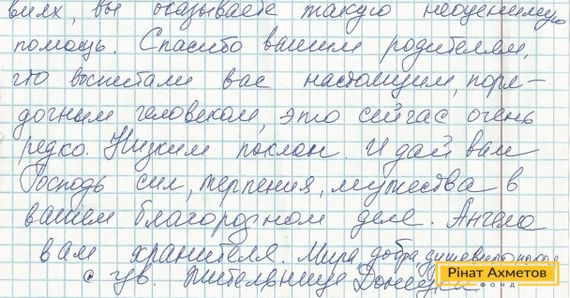 виях, вы оказываете такую неоценимую
помощь. Спасибо вашим родителям,
что воспитали вас настоящим, поря-
дочным человеком, это сейчас очень
редко. Низкий поклон. И дай вам
Господь сил, терпения, мужества в
вашем благородном деле. Ангела
вам хранителя. Мира, добра, душевного
с ув. жительница Донецка
Рінат Ахметов
ФОНД